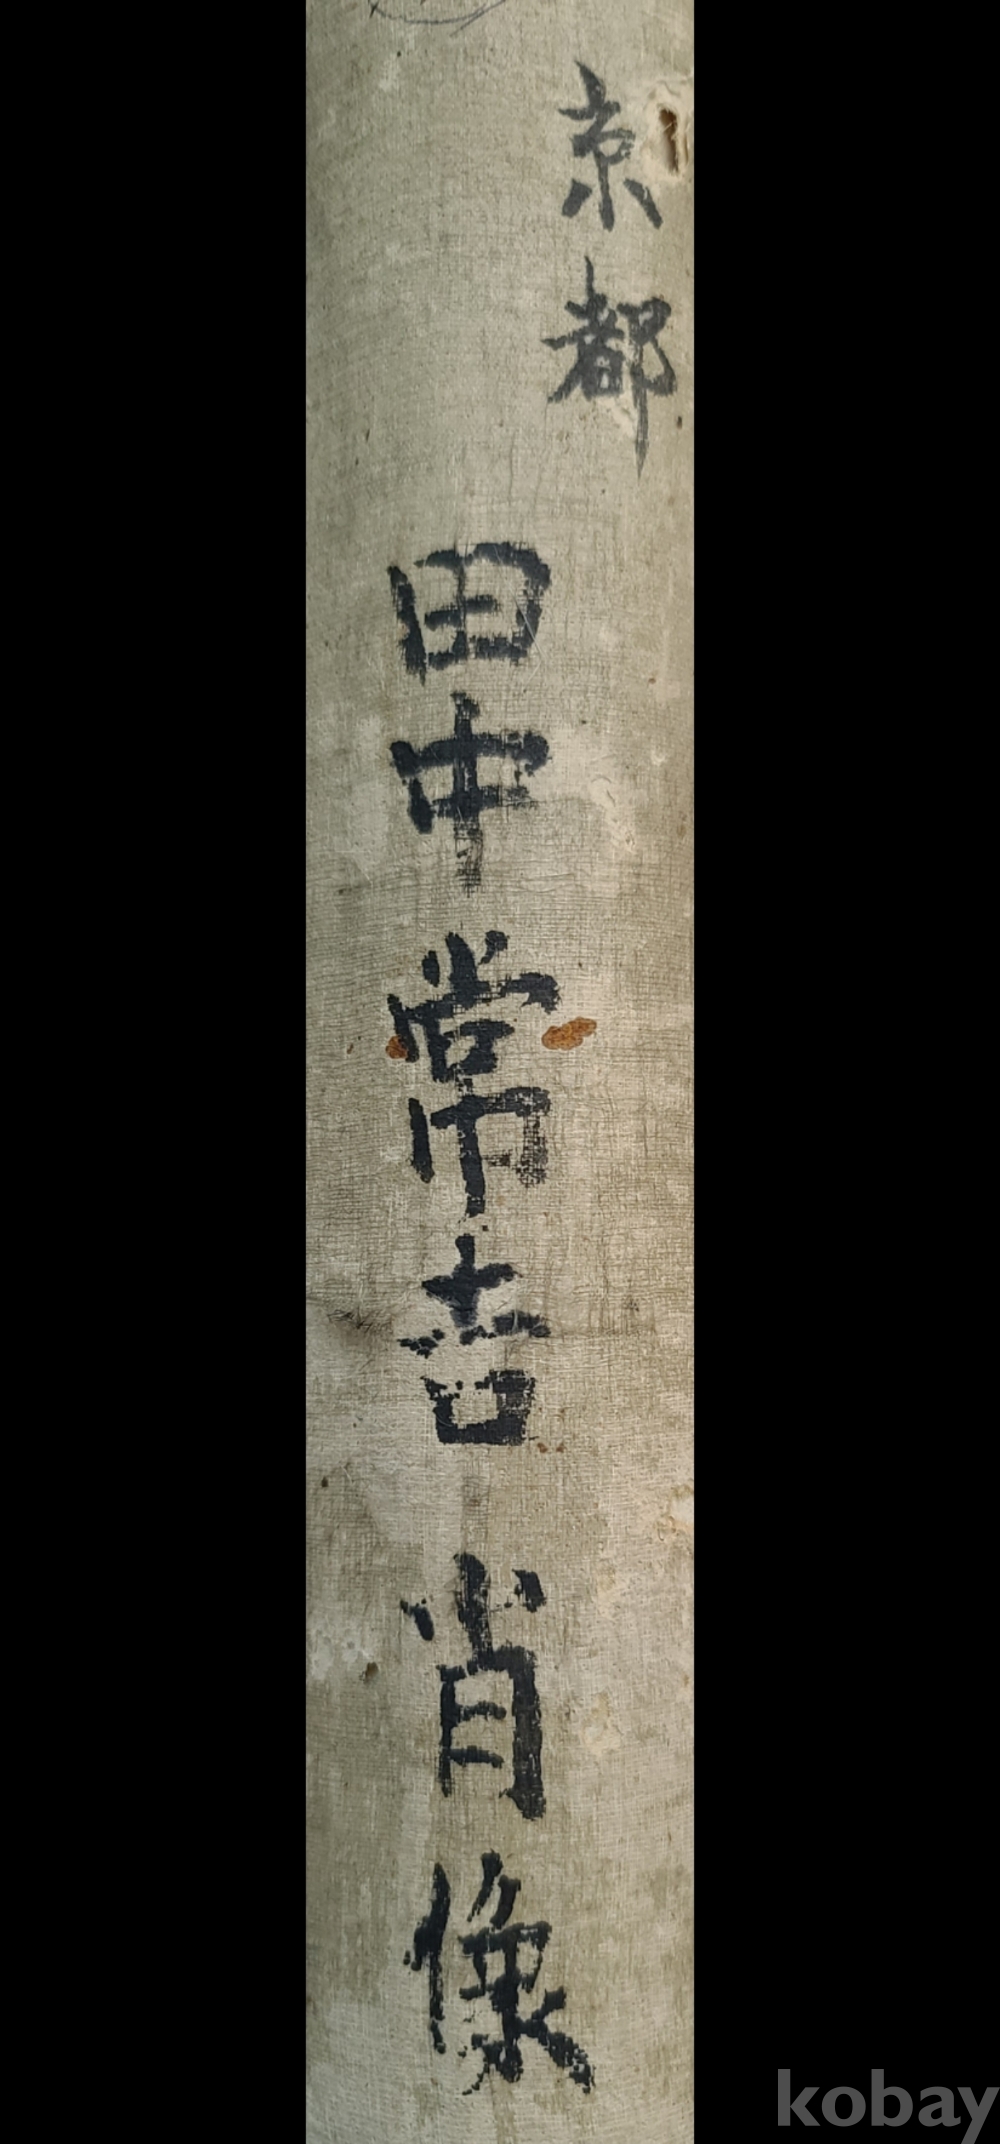 京都
田中常吉肖像
kobay